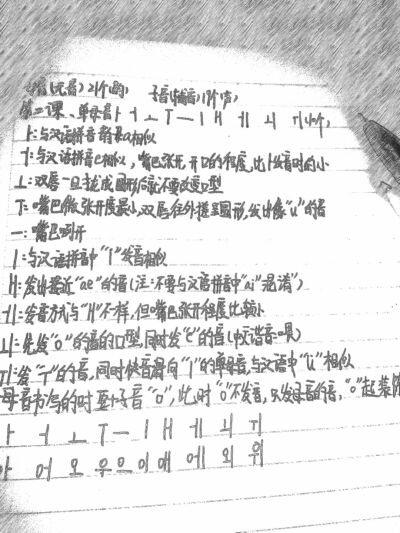 母音(元音)21个(韵) 子音(辅音)19个(声)
第二课、单母音ㅏㅓㅗㅜㅡㅣㅐㅔㅚㅟ(10个)
ㅏ:与汉语拼音韵母a相似
ㅓ:与汉语拼音e相似,嘴巴张死,开口的程度,比ㅏ发音时的小
ㅗ:双唇一旦拢成圆形后就不要改变口型
ㅜ:嘴巴微张开度最小,双唇往外推呈圆形,发出像"u"的音
ㅡ:嘴巴咧开
ㅣ:与汉语拼音中"i"发音相似
ㅐ:发出接近"ae"的音(注:不要与汉语拼音中"ai"混淆)
ㅔ:发音方式与"ㅐ"不样,但嘴巴张开程度比较小
ㅚ:先发"o"的音的口型,同时发"e"的音(中文谐音:喂)
ㅟ:发"ㅜ"的音,同时快音滑向"ㅣ"的单母音,与汉语中"ü"相似
母音书写的时要子音"ㅇ",此时"ㅇ"不发音,只发母音的音,"ㅇ"起装饰
ㅏ ㅓ ㅗ ㅜ ㅡ ㅣ ㅐ ㅔ ㅚ ㅟ
아 어 오 우 으 이 애 에 외 위